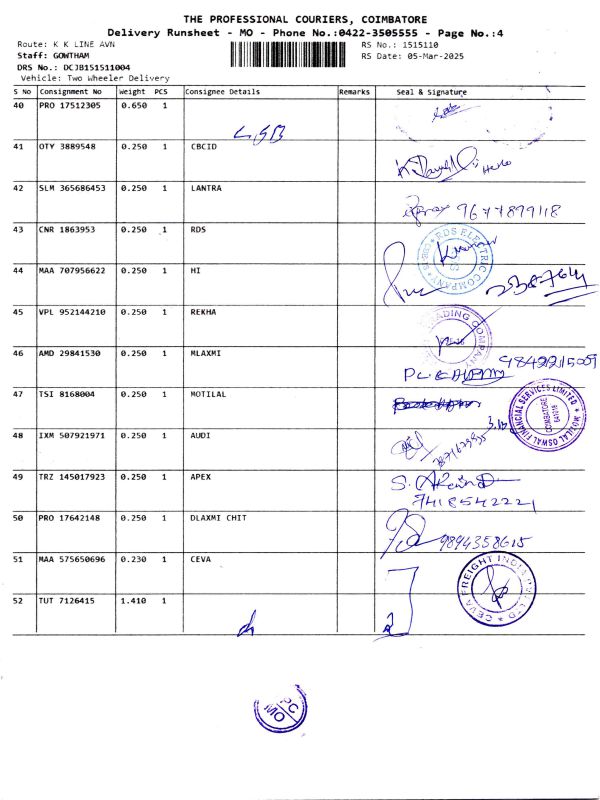 THE PROFESSIONAL COURIERS, COIMBATORE
Delivery Runsheet - MO - Phone No.:0422-3505555 - Page No.:4
Route: K K LINE AVN
RS No.: 1515110
Staff: GOWTHAM
RS Date: 05-Mar-2025
DRS No.: DCJB151511004
Vehicle: Two Wheeler Delivery
S No Consignment No Weight PCS Consignee Details Remarks Seal & Signature
40 PRO 17512305 0.650 1
41 OTY 3889548 0.250 1 CBCID
42 SLM 365686453 0.250 1 LANTRA
9677899118
43 CNR 1863953 0.250 1 RDS
RDS ELECTRIC COMPANY
44 MAA 707956622 0.250 1 HI
45 VPL 952144210 0.250 1 REKHA
TRADING COMPANY
46 AMD 29841530 0.250 1 MLAXMI
47 TSI 8168004 0.250 1 MOTILAL
MOTILAL OSWAL FINANCIAL SERVICES LIMITED
COIMBATORE
641018
48 IXM 507921971 0.250 1 AUDI
49 TRZ 145017923 0.250 1 APEX
7418542221
50 PRO 17642148 0.250 1 DLAXMI CHIT
9894358615
51 MAA 575650696 0.230 1 CEVA
CEVA FREIGHT INDIA PVT LTD
52 TUT 7126415 1.410 1